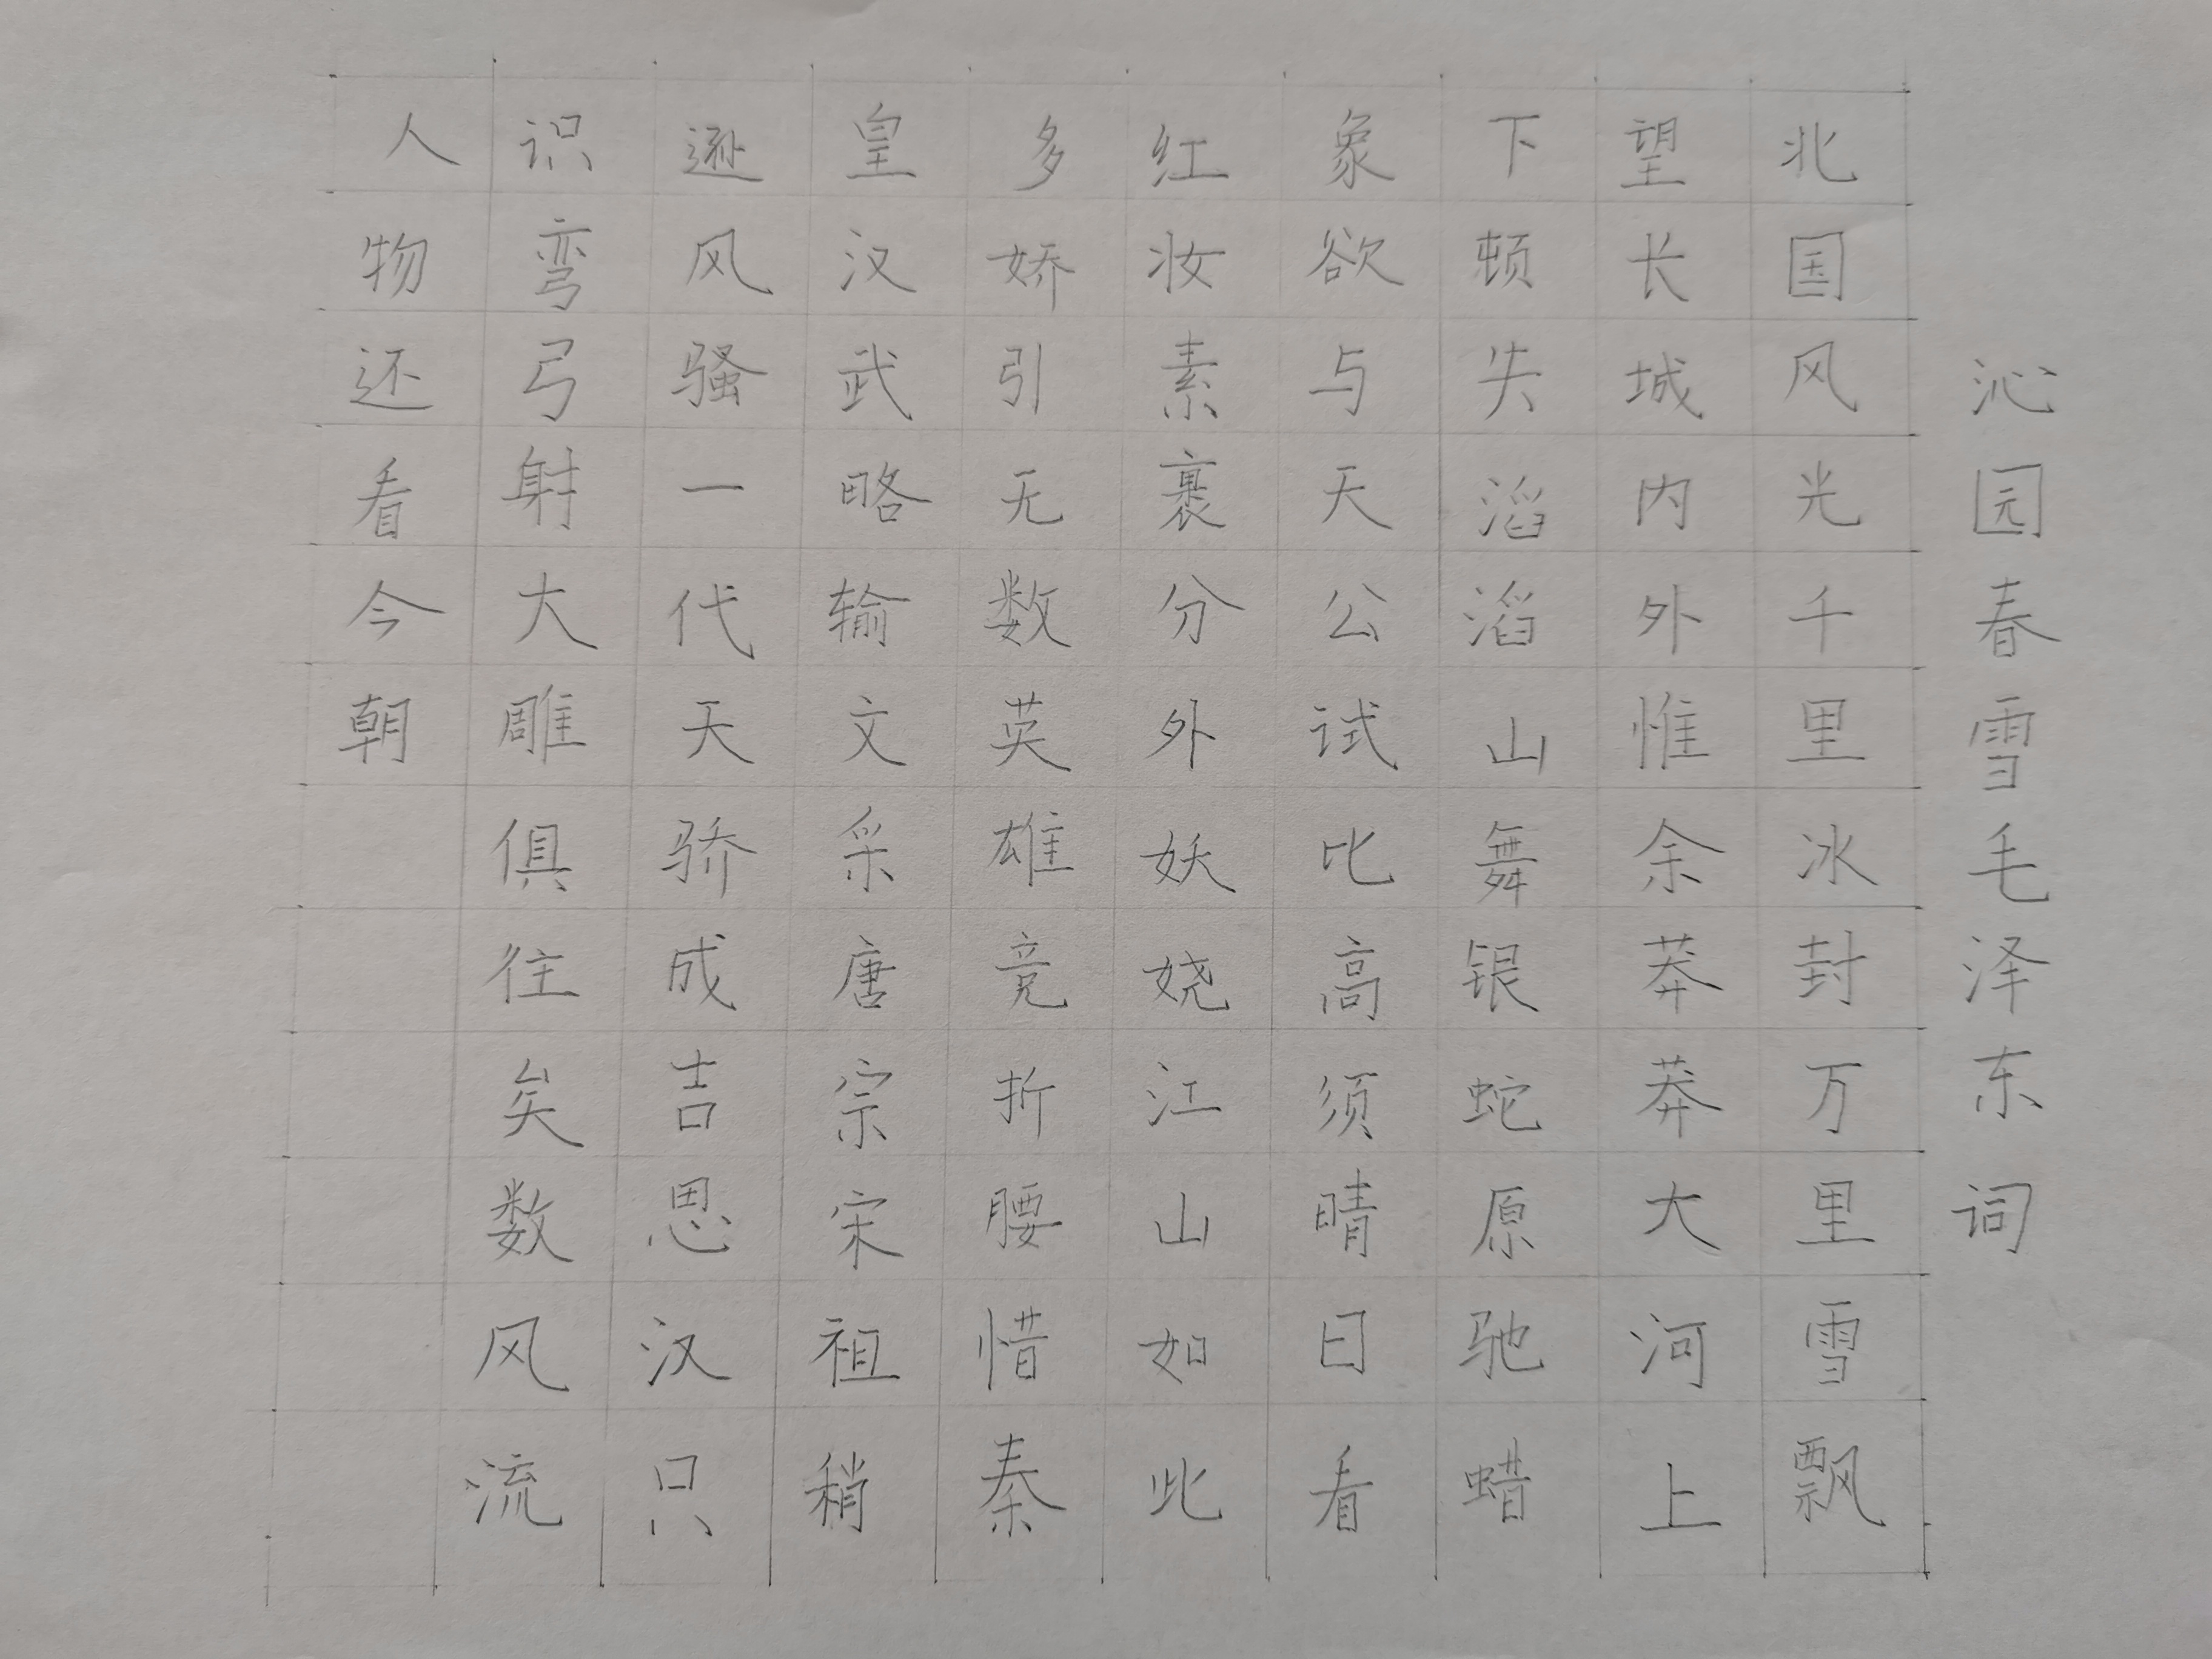 沁园春雪毛泽东词
北国风光千里冰封万里雪飘
望长城内外惟余莽莽大河上
下顿失滔滔山舞银蛇原驰蜡
象欲与天公试比高须晴日看
红妆素裹分外妖娆江山如此
多娇引无数英雄竞折腰惜秦
皇汉武略输文采唐宗宋祖稍
逊风骚一代天骄成吉思汉只
识弯弓射大雕俱往矣数风流
人物还看今朝